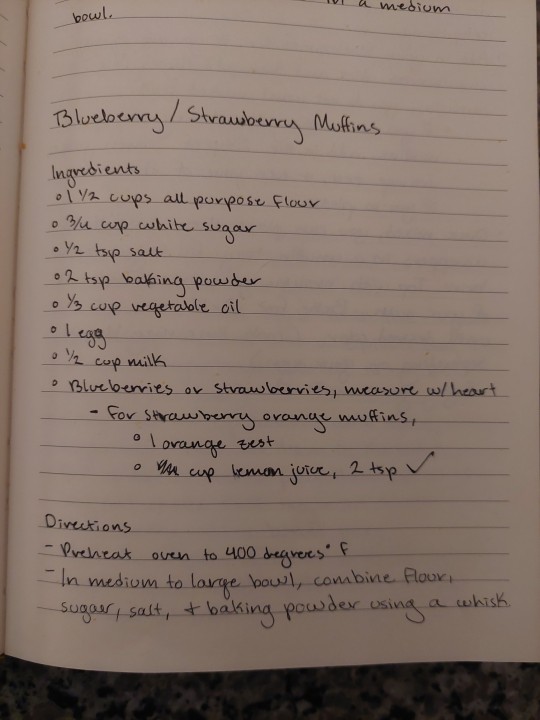 a medium
bowl.
Blueberry / Strawberry Muffins
Ingredients
° 1 1/2 cups all purpose flour
° 3/4 cup white sugar
° 1/2 tsp salt
° 2 tsp baking powder
° 1/3 cup vegetable oil
° 1 egg
° 1/2 cup milk
° Blueberries or strawberries, measure w/ heart
- For strawberry orange muffins,
° 1 orange zest
° cup lemon juice, 2 tsp ✓
Directions
- Preheat oven to 400 degrees° F
- In medium to large bowl, combine flour,
sugar, salt, + baking powder using a whisk